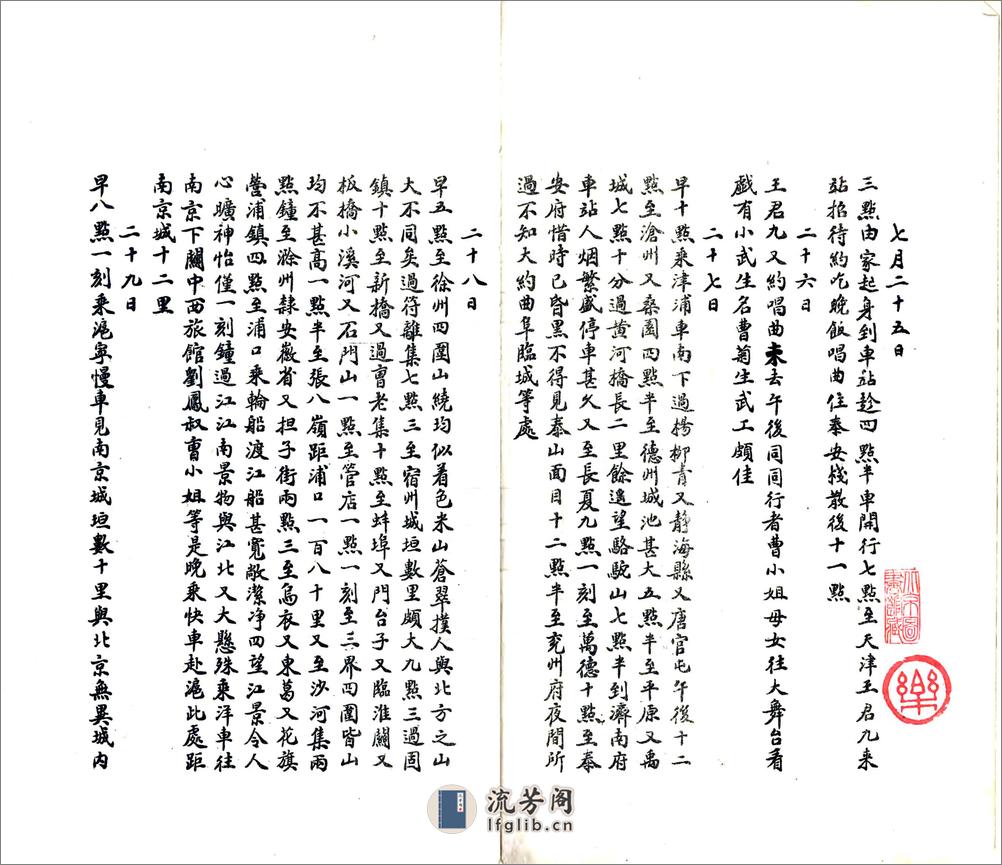 七月二十五日
三點由家起身到車站趁四點半車開行七點至天津王君九來
站招待約吃晚飯唱曲住泰安棧散後十一點
二十六日
王君九又約唱曲未去午後同同行者曹小姐母女往大舞台看
戲有小武生名曹菊生武工頗佳
二十七日
早十點乘津浦車南下過楊柳青又靜海縣又唐官屯午後十二
點至滄州又桑園四點半至德州城池甚大五點半至平原又禹
城七點十分過黃河橋長二里餘遙望駱駝山七點半到濟南府
車站人烟繁盛停車甚久又至長夏九點一刻至萬德十點至泰
安府惜時已昏黑不得見泰山面目十二點半至兖州府夜間所
過不知大約曲阜臨城等處
二十八日
早五點至徐州四圍山繞均似着色米山蒼翠撲人與北方之山
大不同矣過符離集七點三至宿州城垣數里頗大九點三過固
鎮十點至新橋又過曹老集十點至蚌埠又門台子又臨淮關又
板橋小溪河又石門山一點至管店一點一刻至三界四圍皆山
均不甚高一點半至張八嶺距浦口一百八十里又至沙河集兩
點鐘至滁州隸安徽省又担子街兩點三至烏衣又東葛又花旗
營浦鎮四點至浦口乘輪船渡江船甚寬敞潔净四望江景令人
心曠神怡僅一刻鐘過江江南景物與江北又大懸殊乘洋車往
南京下關中西旅館劉鳳叔曹小姐等是晚乘快車赴滬此處距
南京城十二里
二十九日
早八點一刻乘滬寧慢車見南京城垣數十里與北京無異城内
樂
流芳阁
lfglib.cn